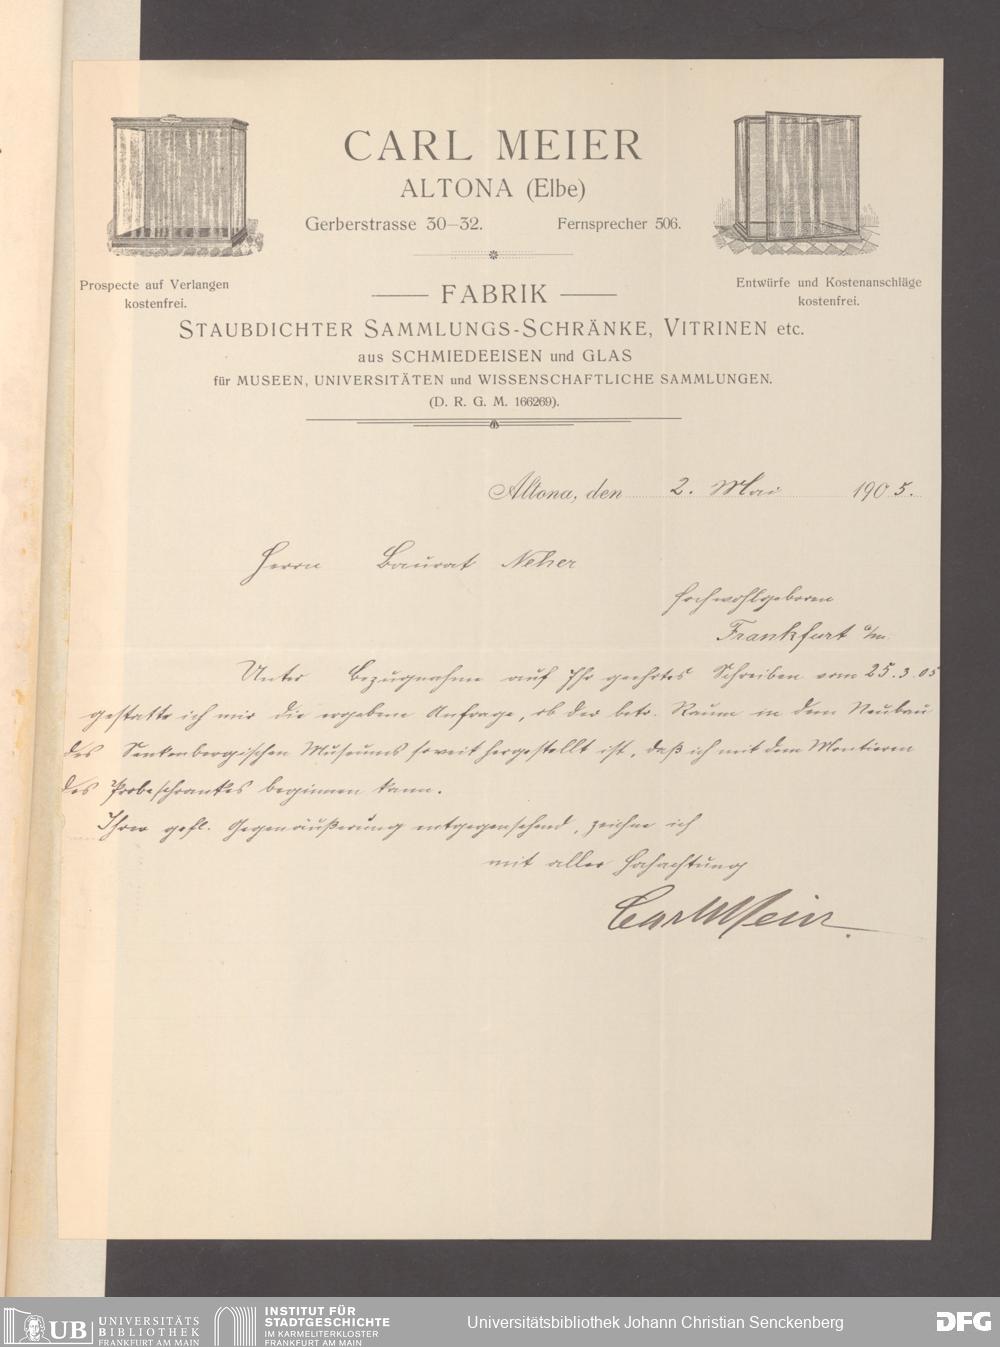 CARL MEIER
ALTONA (Elbe)
Gerberstrasse 30–32. Fernsprecher 506.
Prospecte auf Verlangen
kostenfrei.
Entwürfe und Kostenanschläge
kostenfrei.
FABRIK
STAUBDICHTER SAMMLUNGS-SCHRÄNKE, VITRINEN etc.
aus SCHMIEDEEISEN und GLAS
für MUSEEN, UNIVERSITÄTEN und WISSENSCHAFTLICHE SAMMLUNGEN.
(D. R. G. M. 166269).
Altona, den 2. Mai 1905.
Herrn Baurat Neher
Hochwohlgeboren
Frankfurt a/m.
Unter Bezugnahme auf Ihr geehrtes Schreiben vom 25.3.05
gestatte ich mir die ergebene Anfrage, ob der betr. Raum in dem Neubau
des Senkenbergischen Museums soweit hergestellt ist, daß ich mit dem Montieren
des Probeschrankes beginnen kann.
Ihrer gefl. Gegenäußerung entgegensehend, zeichne ich
mit aller Hochachtung
Carl Meier.
UB UNIVERSITÄTS
BIBLIOTHEK
FRANKFURT AM MAIN
INSTITUT FÜR
STADTGESCHICHTE
IM KARMELITERKLOSTER
FRANKFURT AM MAIN
Universitätsbibliothek Johann Christian Senckenberg
DFG